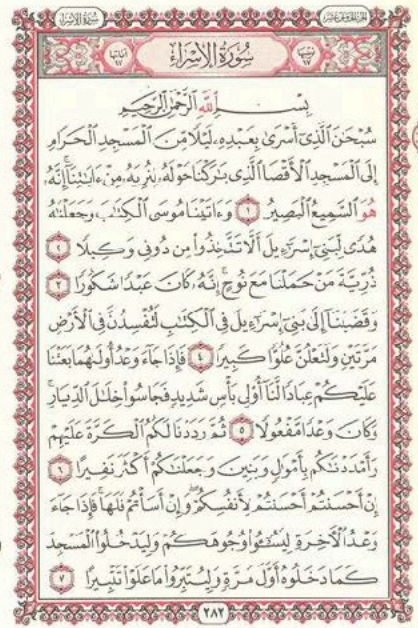 سُورَةُ الْإِسْرَاءِ
بِسْمِ اللَّهِ الرَّحْمَٰنِ الرَّحِيمِ
سُبْحَٰنَ ٱلَّذِىٓ أَسْرَىٰ بِعَبْدِهِۦ لَيْلًا مِّنَ ٱلْمَسْجِدِ ٱلْحَرَامِ
إِلَى ٱلْمَسْجِدِ ٱلْأَقْصَا ٱلَّذِى بَٰرَكْنَا حَوْلَهُۥ لِنُرِيَهُۥ مِنْ ءَايَٰتِنَآ ۚ إِنَّهُۥ
هُوَ ٱلسَّمِيعُ ٱلْبَصِيرُ ١ وَءَاتَيْنَا مُوسَى ٱلْكِتَٰبَ وَجَعَلْنَٰهُ
هُدًى لِّبَنِىٓ إِسْرَٰٓءِيلَ أَلَّا تَتَّخِذُوا۟ مِن دُونِى وَكِيلًا ٢
ذُرِّيَّةَ مَنْ حَمَلْنَا مَعَ نُوحٍ ۚ إِنَّهُۥ كَانَ عَبْدًا شَكُورًا ٣
وَقَضَيْنَآ إِلَىٰ بَنِىٓ إِسْرَٰٓءِيلَ فِى ٱلْكِتَٰبِ لَتُفْسِدُنَّ فِى ٱلْأَرْضِ
مَرَّتَيْنِ وَلَتَعْلُنَّ عُلُوًّا كَبِيرًا ٤ فَإِذَا جَآءَ وَعْدُ أُولَىٰهُمَا بَعَثْنَا
عَلَيْكُمْ عِبَادًا لَّنَآ أُو۟لِى بَأْسٍ شَدِيدٍ فَجَاسُوا۟ خِلَٰلَ ٱلدِّيَارِ ۚ
وَكَانَ وَعْدًا مَّفْعُولًا ٥ ثُمَّ رَدَدْنَا لَكُمُ ٱلْكَرَّةَ عَلَيْهِمْ
وَأَمْدَدْنَٰكُم بِأَمْوَٰلٍ وَبَنِينَ وَجَعَلْنَٰكُمْ أَكْثَرَ نَفِيرًا ٦
إِنْ أَحْسَنتُمْ أَحْسَنتُمْ لِأَنفُسِكُمْ ۖ وَإِنْ أَسَأْتُمْ فَلَهَا ۚ فَإِذَا جَآءَ
وَعْدُ ٱلْءَاخِرَةِ لِيَسُۥٓـُٔوا۟ وُجُوهَكُمْ وَلِيَدْخُلُوا۟ ٱلْمَسْجِدَ
كَمَا دَخَلُوهُ أَوَّلَ مَرَّةٍ وَلِيُتَبِّرُوا۟ مَا عَلَوْا۟ تَتْبِيرًا ٧
٢٨٢